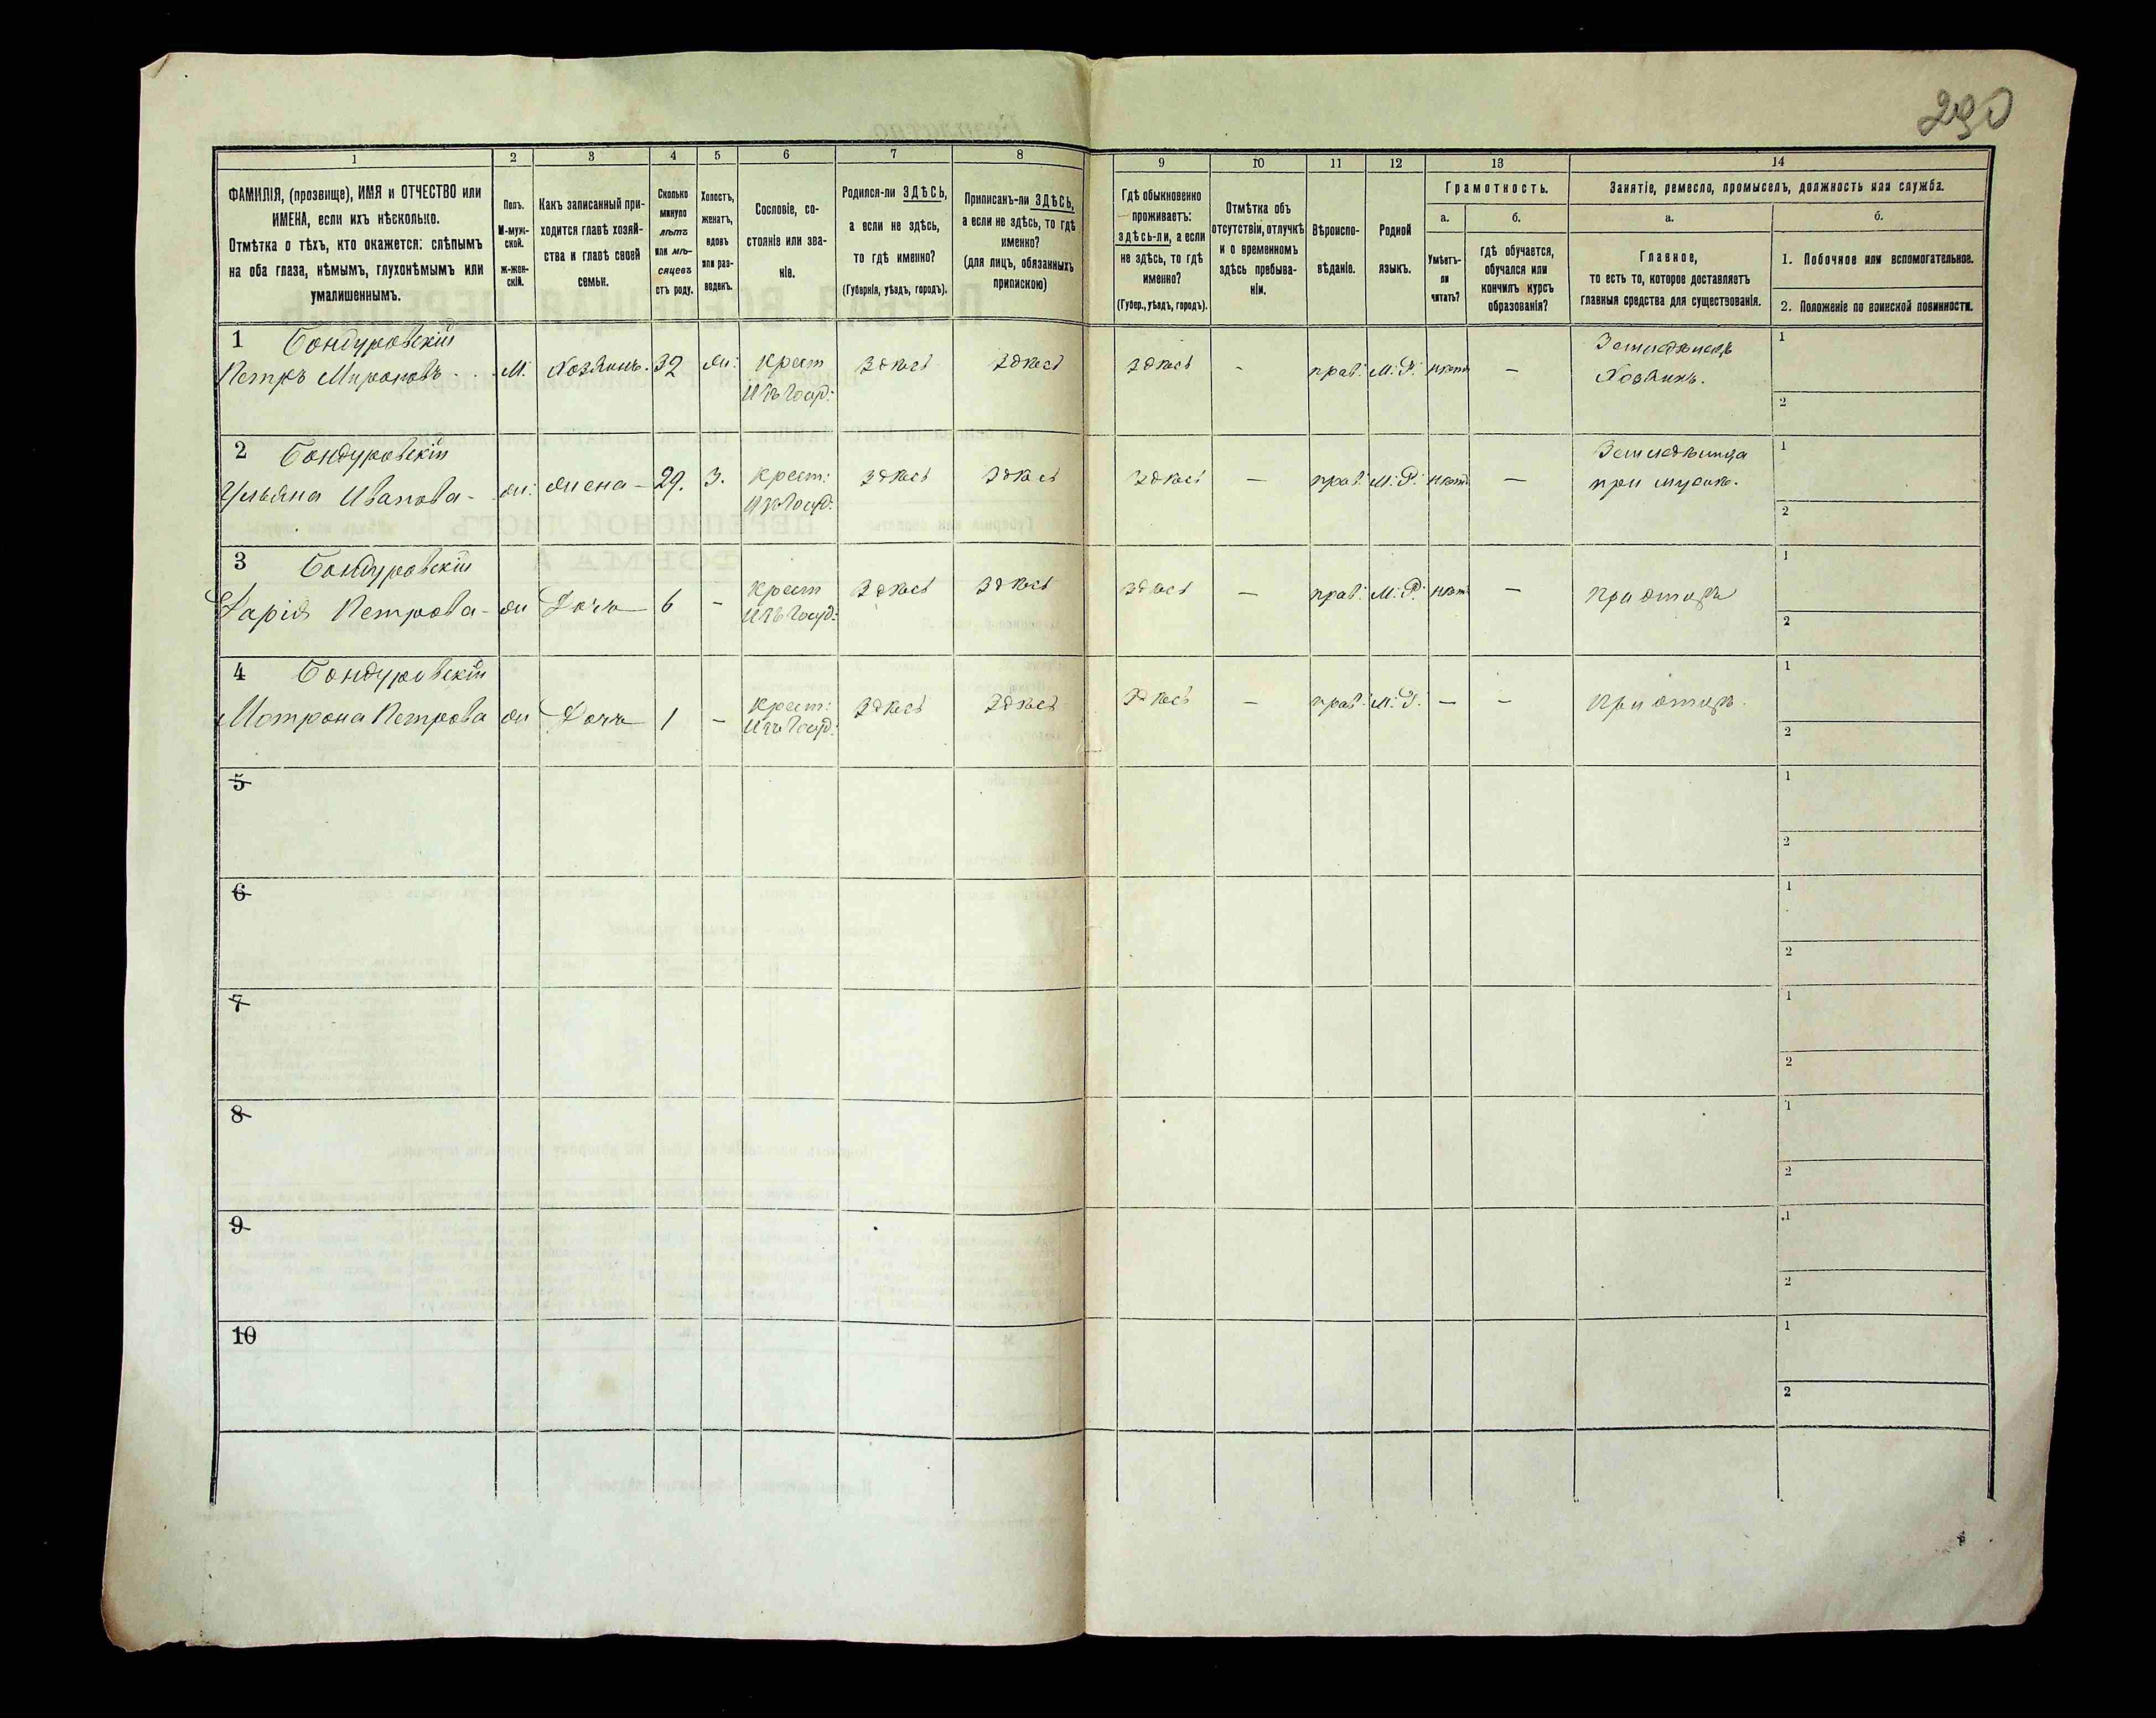 290
1 2 3 4 5 6 7 8 9 10 11 12 13 14
ФАМИЛІЯ, (прозвище), ИМЯ и ОТЧЕСТВО или
ИМЕНА, если ихъ нѣсколько.
Отмѣтка о тѣхъ, кто окажется: слѣпымъ
на оба глаза, нѣмымъ, глухонѣмымъ или
умалишеннымъ.
Полъ.
М-муж-
ской.
Ж-жен-
скій.
Какъ записанный при-
ходится главѣ хозяй-
ства и главѣ своей
семьи.
Сколько
минуло
лѣтъ
или мѣ-
сяцевъ
отъ роду.
Холостъ,
женатъ,
вдовъ
или раз-
веденъ.
Сословіе, со-
стояніе или зва-
ніе.
Родился-ли ЗДѢСЬ,
а если не здѣсь,
то гдѣ именно?
(Губернія, уѣздъ, городъ).
Приписанъ-ли ЗДѢСЬ,
а если не здѣсь, то гдѣ
именно?
(для лицъ, обязанныхъ
припискою)
Гдѣ обыкновенно
проживаетъ:
здѣсь-ли, а если
не здѣсь, то гдѣ
именно?
(Губер., уѣздъ, городъ).
Отмѣтка объ
отсутствіи, отлучкѣ
и о временномъ
здѣсь пребыва-
ніи.
Вѣроиспо-
вѣданіе.
Родной
языкъ.
Грамотность.
а.
Умѣетъ-
ли
читать?
б.
гдѣ обучается,
обучался или
кончилъ курсъ
образованія?
Занятіе, ремесло, промыселъ, должность или служба.
а.
Главное,
то есть то, которое доставляетъ
главныя средства для существованія.
б.
1. Побочное или вспомогательное.
2. Положеніе по воинской повинности.
1 Бондуровскій
Петръ Мироновъ - М. Хозяинъ. 32 ж: крест здѣсь здѣсь здѣсь - прав: М.Р. нѣтъ - Земледѣлецъ
Изъ Госуд: Хозяинъ.
1
2
2 Бондуровскій
Ульяна Иванова - ж: жена - 29. З. крест: здѣсь здѣсь здѣсь - прав: М.Р. нѣтъ - Земледѣлица
Изъ Госуд: при мужѣ.
1
2
3 Бондуровскій
Дарія Петрова - ж Дочь 6 - крест здѣсь здѣсь здѣсь - прав: М.Р. нѣтъ - при отцѣ
Изъ Госуд:
1
2
4 Бондуровскій
Мотрона Петрова ж Дочь 1 - крест: здѣсь здѣсь здѣсь - прав: М.Р. - - при отцѣ.
Изъ Госуд:
1
2
5
1
2
6
1
2
7
1
2
8
1
2
9
1
2
10
1
2